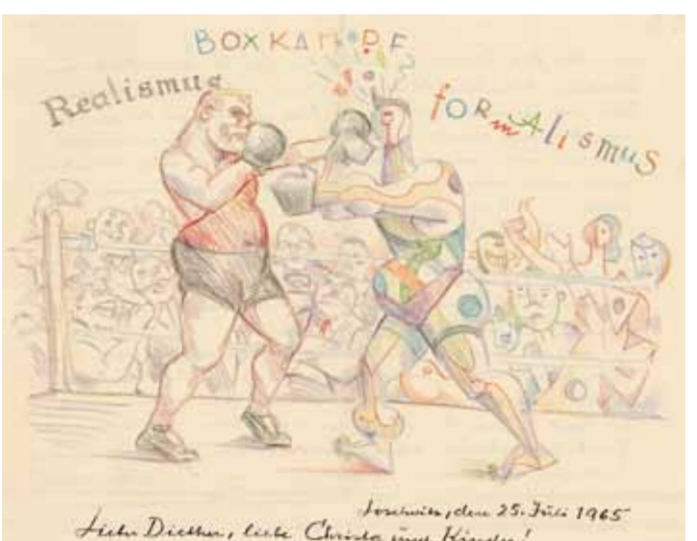 BOXKAMPF
Realismus
foRmAlismus
Loschwitz, den 25. Juli 1965
Liebe Diether, liebe Christa und Kinder!